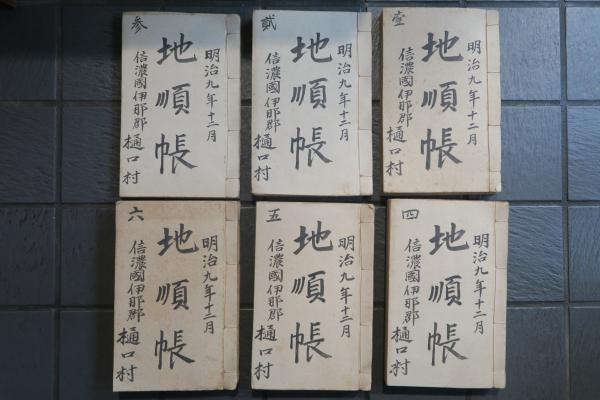 壹
明治九年十二月
地順帳
信濃國伊那郡
樋口村
貳
明治九年十二月
地順帳
信濃國伊那郡
樋口村
参
明治九年十二月
地順帳
信濃國伊那郡
樋口村
四
明治九年十二月
地順帳
信濃國伊那郡
樋口村
五
明治九年十二月
地順帳
信濃國伊那郡
樋口村
六
明治九年十二月
地順帳
信濃國伊那郡
樋口村